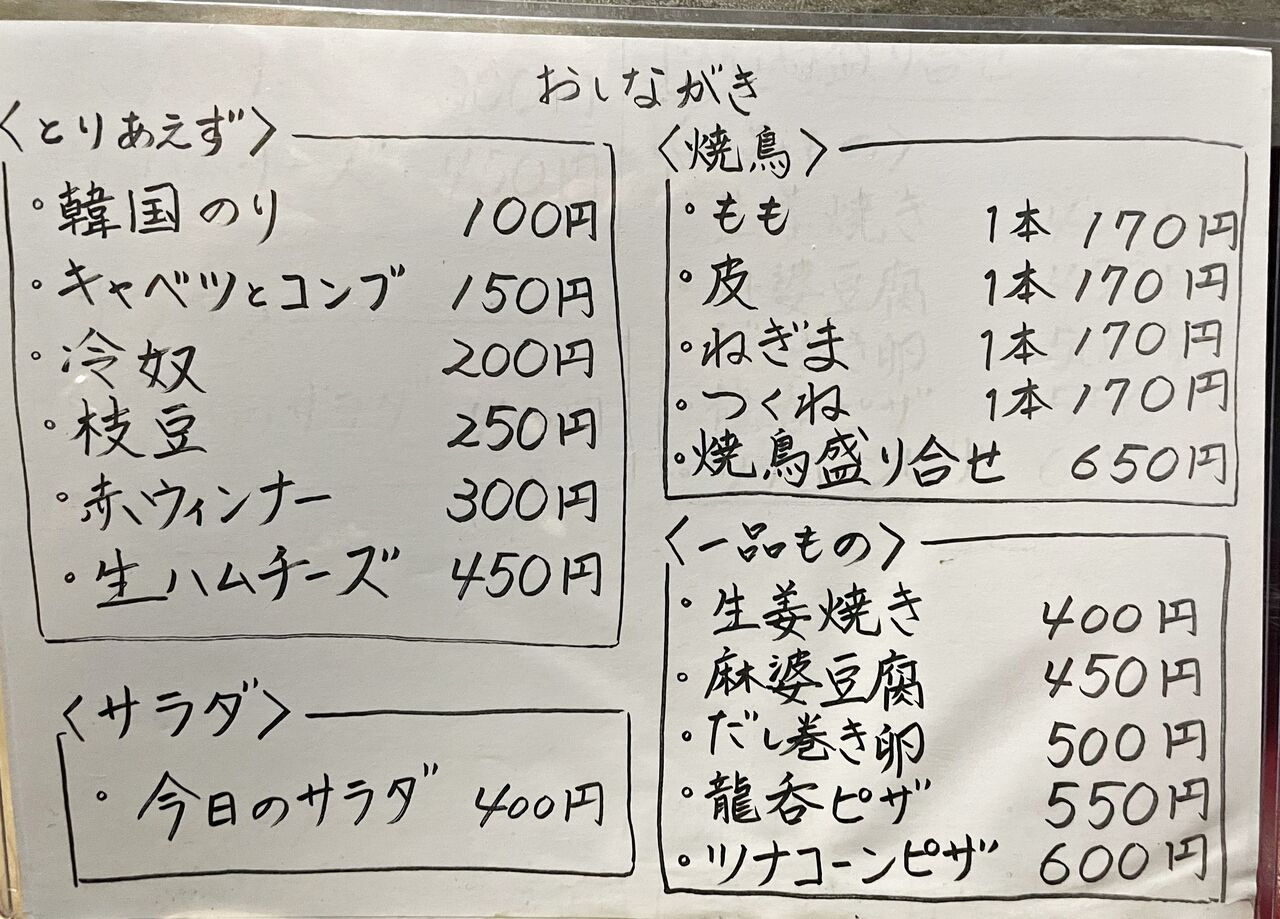 おしながき
〈とりあえず〉
・韓国のり 100円
・キャベツとコンブ 150円
・冷奴 200円
・枝豆 250円
・赤ウィンナー 300円
・生ハムチーズ 450円
〈サラダ〉
・今日のサラダ 400円
〈焼鳥〉
・もも 1本 170円
・皮 1本 170円
・ねぎま 1本 170円
・つくね 1本 170円
・焼鳥盛り合せ 650円
〈一品もの〉
・生姜焼き 400円
・麻婆豆腐 450円
・だし巻き卵 500円
・龍呑ピザ 550円
・ツナコーンピザ 600円